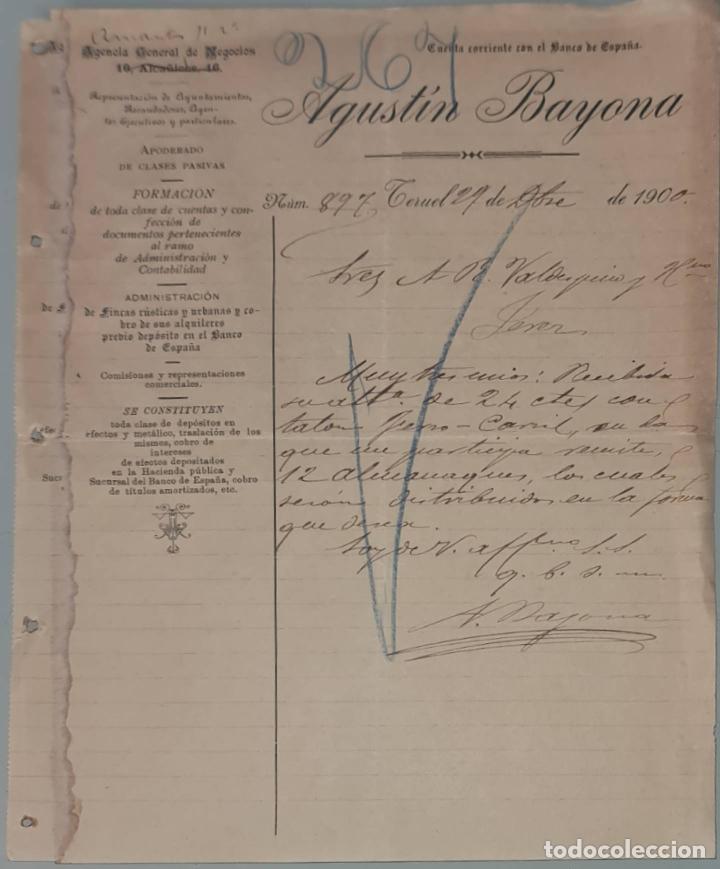 Amantes 11 2º
Agencia General de Negocios
16, Alcañices, 16.
Representación de Ayuntamientos,
Recaudadores, Agen-
tes Ejecutivos y particulares.
APODERADO
DE CLASES PASIVAS
FORMACION
de toda clase de cuentas y con-
fección de
documentos pertenecientes
al ramo
de Administración y
Contabilidad
ADMINISTRACIÓN
de fincas rústicas y urbanas y co-
bro de sus alquileres
previo depósito en el Banco
de España
Comisiones y representaciones
comerciales.
SE CONSTITUYEN
toda clase de depósitos en
efectos y metálico, traslación de los
mismos, cobro de
intereses
de efectos depositados
en la Hacienda pública y
Sucursal del Banco de España, cobro
de títulos amortizados, etc.
267
Cuenta corriente con el Banco de España.
Agustín Bayona
Núm. 897 Teruel 29 de Dbre de 1900.
Sres A. R. Valdespino y Hno
Jerez
Muy Sres mios: Recibida
su atta. de 24 ctes con
talon ferro-carril, en la
que me participa remite,
12 Almanaques, los cuales
serán distribuidos en la forma
que desea.
Soy de V. affmo S.S.
q. b. s. m.
A. Bayona
de F
Sucr
todocoleccion.net